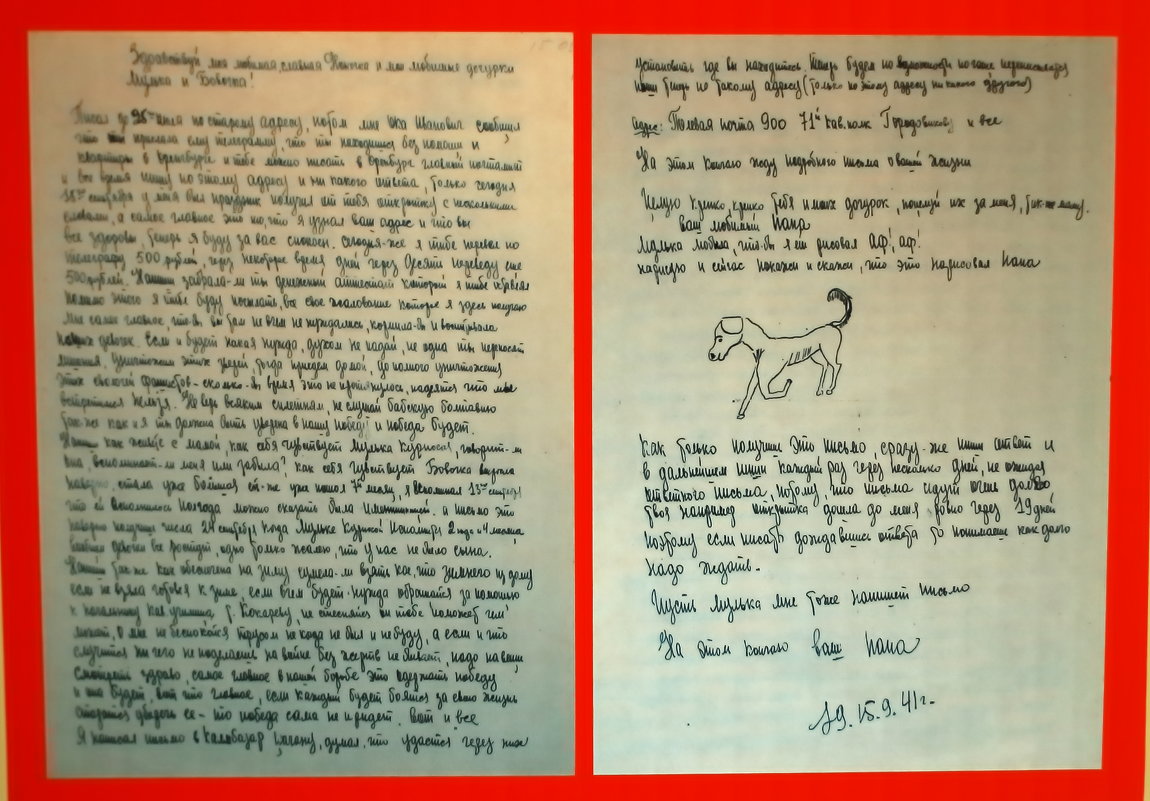 Здравствуй моя любимая, славная и мои любимые дочурки
Мулька и Бовочка!
Писал до 25го июля по старому адресу, потом мне Ока Иванович сообщил
что ты прислала ему телеграмму, что ты находишся без помощи и
квартиры в Оренбурге и тебе можно писать в Оренбург главный почтампт
и все время пишу по этому адресу и ни какого ответа, только сегодня
15го сентября у меня был праздник получил от тебя открытку с несколькими
словами, а самое главное это то, что я узнал ваш адрес и что вы
все здоровы, теперь я буду за вас спокоен. Сегодня-же я тебе перевел по
телеграфу 500 рублей, через некоторое время дней через десять переведу еще
500 рублей. Напиши забрала-ли ты денежный аттестат который я тебе
помимо этого я тебе буду посылать, все свое жалование которое я здесь получаю
мне самое главное, что-б вы там не в чем не нуждались, кормила-б и воспитывала
наших девочек. Если и будет какая нужда, духом не падай, не одна ты переносят
лишения. Уничтожим этих зверей, тогда приедем домой, до полного уничтожения
этих сволочей фашистов - сколько-бы время это не протянулось, надеятся что мы
встретимся нельзя. Не верь всяким сплетням, не слушай бабскую болтавню
так-же как и я ты должна быть уверена в нашу победу и победа будет.
Напиши как живете с мамой, как себя чувствует Мулька курносая, говорит-ли
она, вспоминает-ли меня или забыла? как себя чувствует Бовочка выросла
наверно, стала уже большая ей-же уже пошол 7й месяц, я вспоминал 13го сентября
что ей исполнилось полгода можно сказать была имениницей. и письмо это
наверно получите числа 24 сентября, когда Мульке курносой исполнится 2 года и 4 месяца
девочки все ростут, одно только жалею, что у нас не было сына.
Напиши так-же как обеспечена на зиму сумела-ли взять кое, что зимнего из дому
если не взяла готовься к зиме, если в чем будет нужда обращайся за помощью
к начальнику кав училища т. Кокареву, не стесняйся он тебе поможет чем
может, о мне не беспокойся трусом не когда не был и не буду, а если и что
случится ни чего не поделаешь на войне без жертв не бывает, надо на вещи
смотреть здраво, самое главное в нашей борьбе это одержать победу
и она будет, вот что главное, если каждый будет боятся за свою жизнь
старатся сберечь се - то победа сама не придет. Вот и все
Я написал письмо в думал, что удастся через них
установить где вы находитесь. Теперь будем по возможности по чаще переписыватся
пиши теперь по такому адресу (только по этому адресу ни какого другого)
Адрес: Полевая почта 900 71й кав. полк Городовикову и все
На этом кончаю жду подробного письма о вашей жизни
Целую крепко, крепко тебя и моих дочурок, поцелуй их за меня, так-же маму.
Ваш любимый Папа
Мулька любила, что-бы я ей рисовал Аф! аф!
нарисую и сейчас покажи и скажи, что это нарисовал Папа
Как только получиш это письмо, сразу-же пиши ответ и
в дальнейшем пиши каждый раз через несколько дней, не ожидая
ответного письма, потому, что письма идут очень долго
твоя например открытка дошла до меня ровно через 19 дней
поэтому если писать дождавшись ответа то понимаеш как долго
надо ждать.
Пусть Мулька мне тоже напишет письмо
На этом кончаю ваш Папа
15.9.41 г.